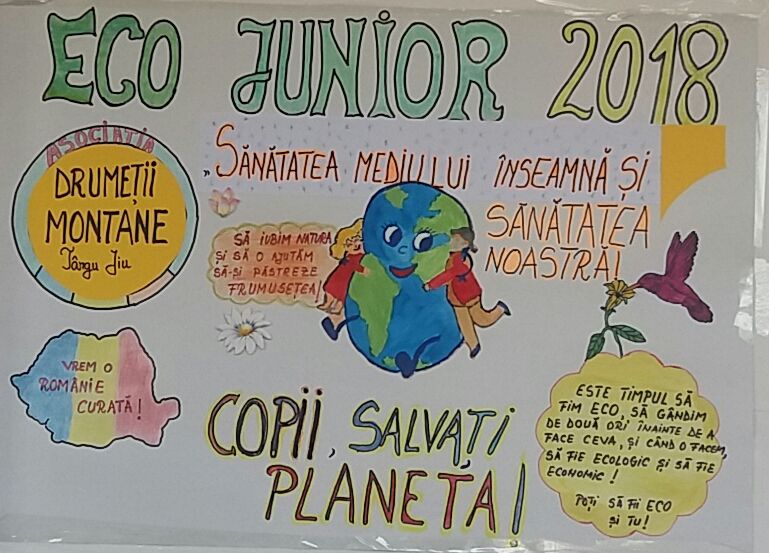 ECO JUNIOR 2018
ASOCIATIA
DRUMEȚII
MONTANE
Târgu Jiu
„SĂNĂTATEA MEDIULUI ÎNSEAMNĂ ȘI
SĂNĂTATEA
NOASTRĂ!
SĂ IUBIM NATURA
ȘI SĂ O AJUTĂM
SĂ-ȘI PĂSTREZE
FRUMUSEȚEA!
VREM O
ROMÂNIE
CURATĂ!
COPII, SALVAȚI
PLANETA!
ESTE TIMPUL SĂ
FIM ECO, SĂ GÂNDIM
DE DOUĂ ORI ÎNAINTE DE A
FACE CEVA, ȘI CÂND O FACEM,
SĂ FIE ECOLOGIC ȘI SĂ FIE
ECONOMIC!
POȚI SĂ FII ECO
ȘI TU!